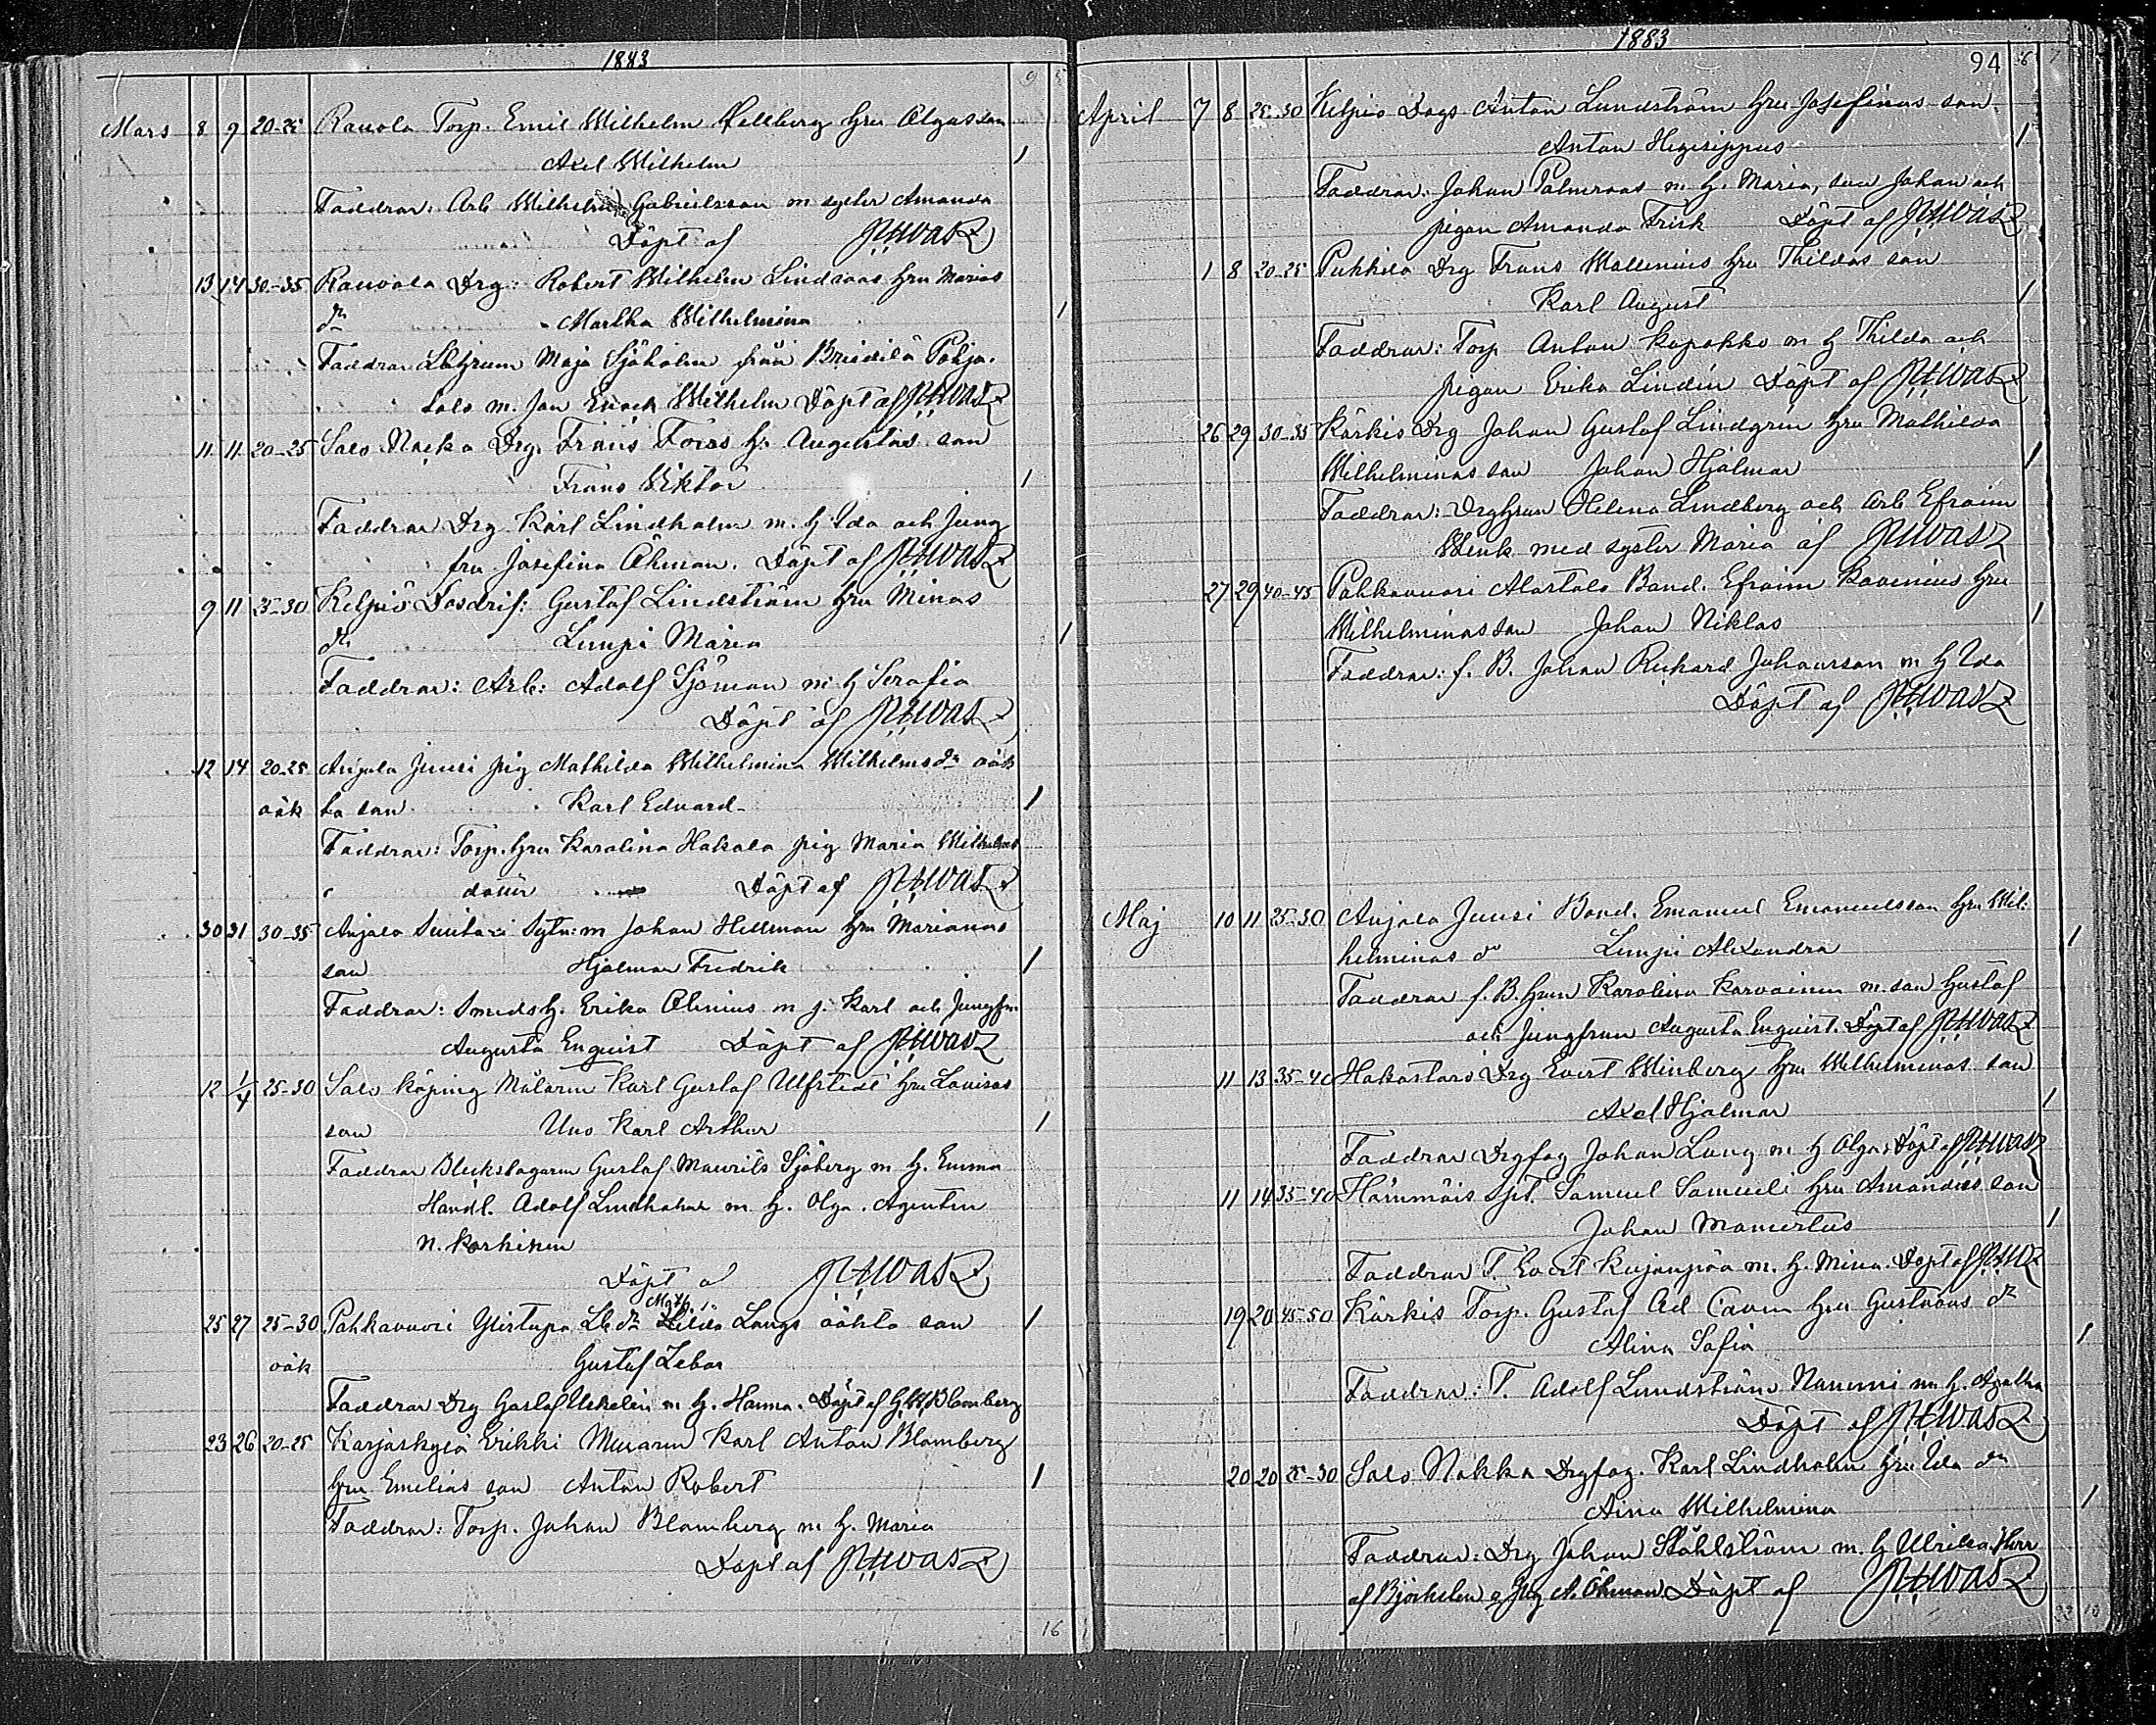 1883
Mars 8 9 20-25 Rauvola Torp. Emil Wilhelm Hellberg hru Olgas son
Axel Wilhelm 1
Faddrar: Arb Wilhelm Gabrielsson m syster Amanda
Döpt af
13 14 30-35 Rauvola Drg: Robert Wilhelm Lindroos hru Marias
dr Martha Wilhelmina 1
Faddrar Maja Sjöholm från Pohja.
Salo m. Jan Enoch Wilhelm Döpt af
11 11 20-25 Salo Nacka Drg. Frans Forss h. Augustas son
Frans Viktor 1
Faddrar Drg Karl Lindholm m. h Ida och Jung
fru Josefina Öhman. Döpt af
9 11 25-30 Kelpiö Gustaf Lindström hru Minas
dr Lumpi Maria 1
Faddrar: Arb: Adolf Sjöman m h Serafia
Döpt af
12 14 20-25 Anjala Jussi pig Mathilda Wilhelmina Wilhelmsdr oäk
oäk ta son Karl Eduard 1
Faddrar: Torp. hru Karolina Hakala pig Maria Wilhelms
dotter Döpt af
30 31 30-35 Anjala Suutari Sytn: m Johan Hellman hru Marianas
son Hjalmar Fredrik 1
Faddrar: Smeds h. Erika Olenius m j. Karl och Jungfru
Augusta Enquist Döpt af
12 1/4 25-30 Salo köping Målaren Karl Gustaf Ulfstedt hru Lovisas
son Uno Karl Arthur 1
Faddrar Bleckslagaren Gustaf Maurits Sjöberg m h. Emma
Handl. Adolf Lindholm m h. Olga. Agenten
N. Karhinen
Döpt af
25 27 25-30 Pahkavuori Ylistupa Lb dr Math. Lilda Langs oäkta son 1
oäk Gustaf Zebar
Faddrar Drg Gustaf Ekelin m h. Hanna. Döpt af G W Blomberg
23 26 20-25 Karjaskylä Erikki Muraren Karl Anton Blomberg
hru Emilias son Anton Robert 1
Faddrar: Torp. Johan Blomberg m h. Maria
Döpt af
16
1883
94
April 7 8 25-30 Kelpiö Anton Lundström hru Josefinas son
Anton Hegisippus 1
Faddrar: Johan Palmroos m h. Maria, son Johan och
pigan Amanda Frisk Döpt af
1 8 20-25 Pukkila Drg Frans Wallenius hru Thildas son
Karl August 1
Faddrar: Torp Anton Kapakko m h Thilda och
pigan Erika Lindén Döpt af
26 29 30-35 Kärkis Drg Johan Gustaf Lindgrén hru Mathilda
Wilhelminas son Johan Hjalmar 1
Faddrar: Drghrun Helena Lindberg och Arb Efraim
Wink med syster Maria af
27 29 40-45 Pahkavuori Alastalo Bond. Efraim Kavenius hru
Wilhelminas son Johan Niklas 1
Faddrar: f. B. Johan Richard Johansson m h Ida
Döpt af
Maj 10 11 25-30 Anjala Jussi Bond. Emanuel Emanuelsson hru Wil-
helminas dr Lumpi Alexandra 1
Faddrar f. B. hrun Karolina Karvainen m. son Gustaf
och Jungfrun Augusta Enquist. Döpt af
11 13 35-40 Hakostaro Drg Evert Winberg hru Wilhelminas son
Axel Hjalmar 1
Faddrar Drgfog Johan Lang m h Olga. Döpt af
11 14 35-40 Hämmäis Spt. Samuel Samueli hru Amandas son
Johan Mamertus 1
Faddrar T. Evert Kujanpää m. h. Mina. Döpt af
19 20 45-50 Kärkis Torp. Gustaf Ad Cavén hru Gustavas dr
Alina Sofia 1
Faddrar: T. Adolf Lundström Nummi m h. Agatha
Döpt af
20 20 25-30 Salo Nakka Drgfog. Karl Lindholm hru Ida dr
Aina Wilhelmina 1
Faddrar: Drg Johan Ståhlström m. h Ulrika Herr
af Björkelen o Jfg A. Öhman Döpt af
22 10